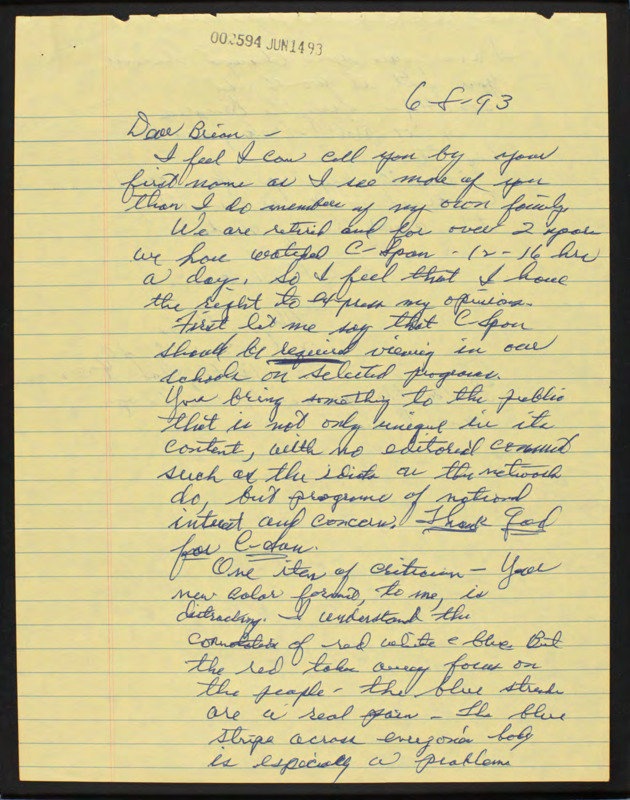 002594 JUN1493
6-8-93
Dear Brian -
I feel I can call you by your
first name as I see more of you
than I do members of my own family.
We are retired and for over 2 years
we have watched C-Span - 12-16 hrs
a day. So I feel that I have
the right to express my opinions.
First let me say that C-Span
should be required viewing in our
schools on selected programs.
You bring something to the public
that is not only unique in its
content, with no editorial comment
such as the idiots on the network
do, but programs of national
interest and concern. Thank God
for C-Span.
One item of criticism - Your
new color format, to me, is
distracting. I understand the
connotation of red white & blue. But
the red takes away focus on
the people - the blue streaks
are a real pain - The blue
stripe across everyone's body
is especially a problem